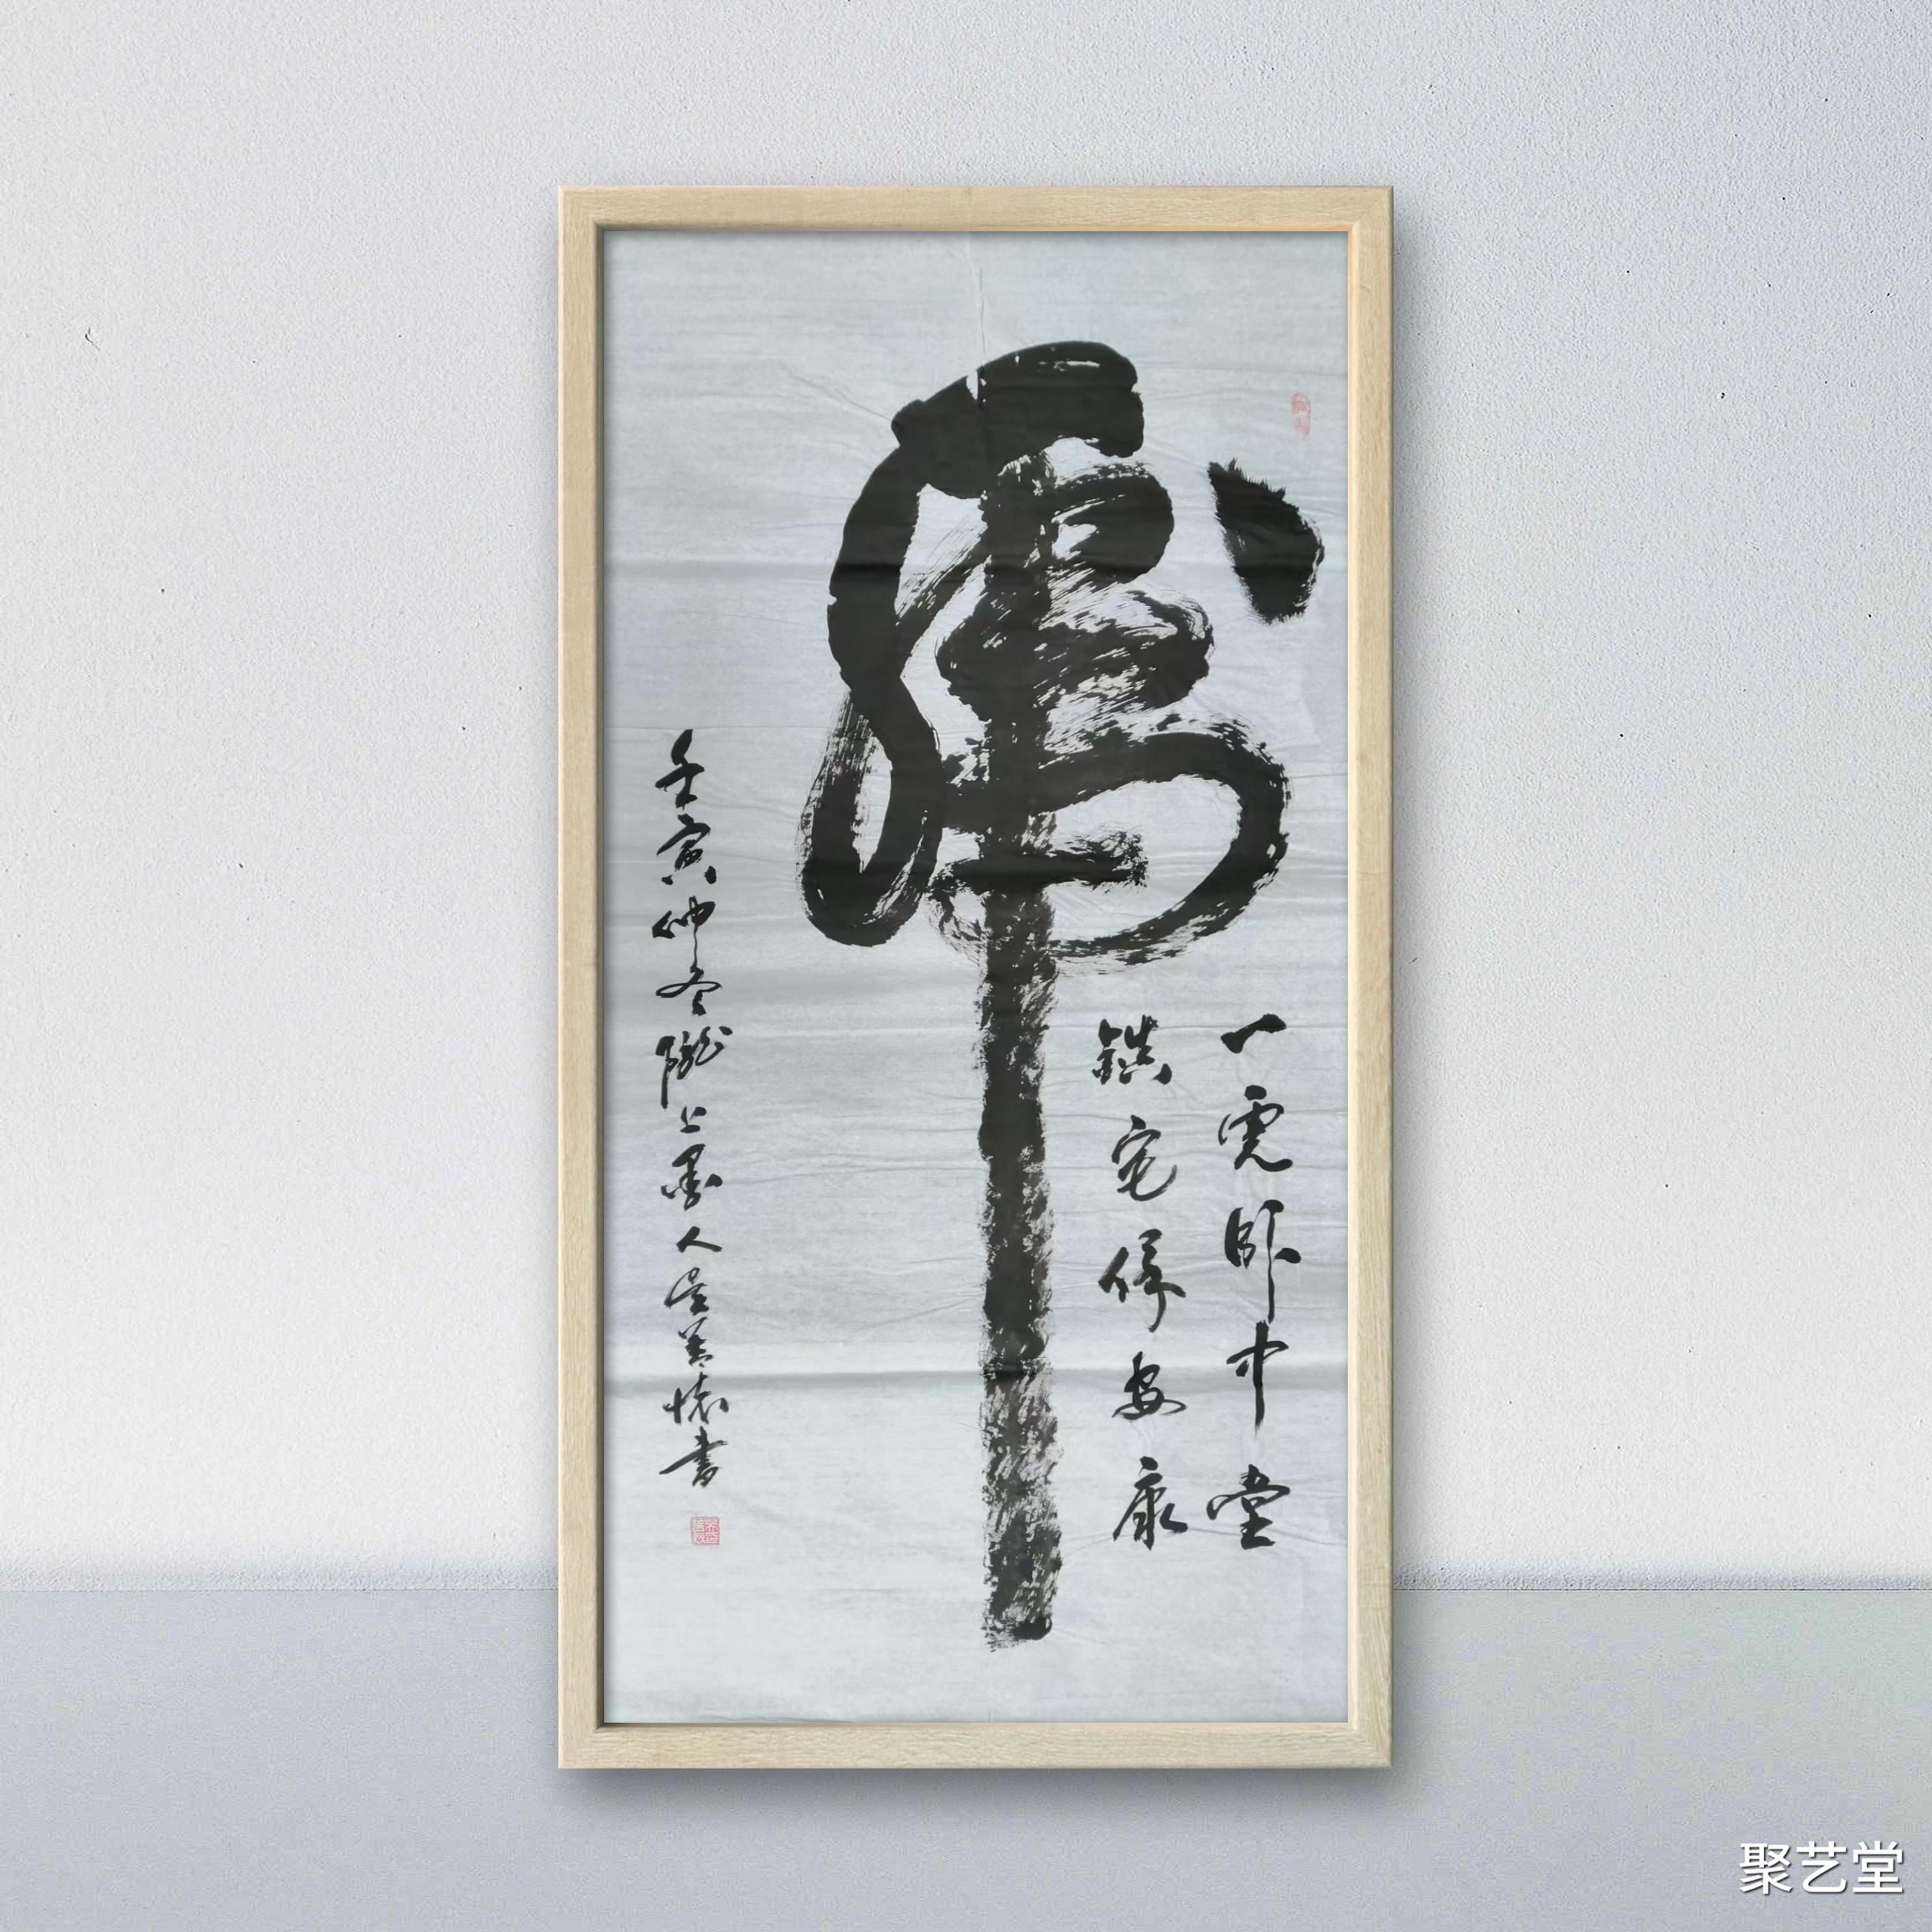 虎
一虎卧中堂
镇宅保安康
壬寅仲冬陇上墨人吴善怀书
聚艺堂